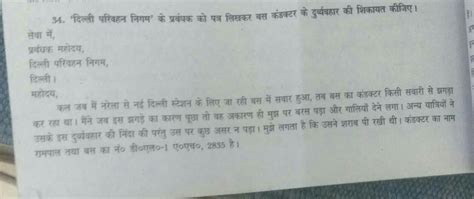 34. 'दिल्ली परिवहन निगम' के प्रबंधक को पत्र लिखकर बस कंडक्टर के दुर्व्यवहार की शिकायत कीजिए।
सेवा में,
प्रबंधक महोदय,
दिल्ली परिवहन निगम,
दिल्ली।
महोदय,
कल जब मैं नरेला से नई दिल्ली स्टेशन के लिए जा रही बस में सवार हुआ, तब बस का कंडक्टर किसी सवारी से झगड़ा
कर रहा था। मैंने जब इस झगड़े का कारण पूछा तो वह अकारण ही मुझ पर बरस पड़ा और गालियाँ देने लगा। अन्य यात्रियों ने
उसके इस दुर्व्यवहार की निंदा की परंतु उस पर कुछ असर न पड़ा। मुझे लगता है कि उसने शराब पी रखी थी। कंडक्टर का नाम
रामपाल तथा बस का नं० डी०एल०-1 ए०एच०, 2835 है।